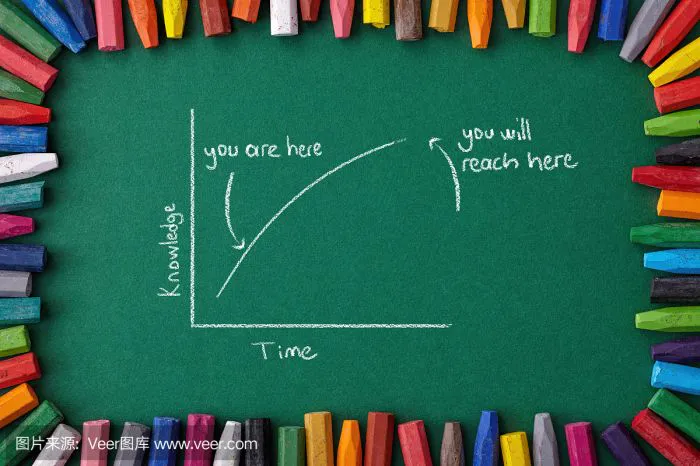 you are here
you will
reach here
Knowledge
Time
图片来源：Veer图库 www.veer.com